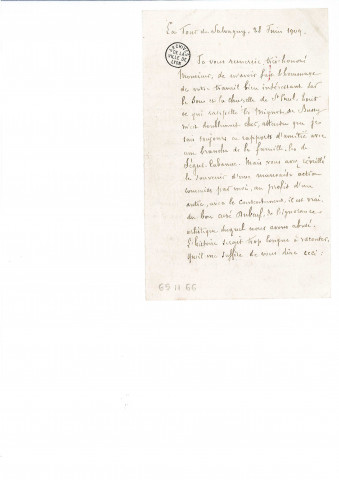 La Tour de Salvagny, 28 Juin 1909.
ARCHIVES
DE LA
VILLE DE
LYON
Je vous remercie, très honoré
Monsieur, de m'avoir fait l'hommage
de votre travail bien intéressant sur
le Dôme et la chapelle de St Paul. Tout
ce qui rappelle les Mignot de Bussy
m'est doublement cher, attendu que je
suis toujours en rapports d'amitié avec
une branche de la famille, les de
Ségur-Cabanac. Mais vous avez réveillé
le souvenir d'une mauvaise action
commise par moi, au profit d'un
autre, avec le consentement, il est vrai,
du bon curé de l'ignorance
artistique duquel nous avons abusé.
L'histoire serait trop longue à raconter.
Qu'il me suffise de vous dire ceci :
69 II 66